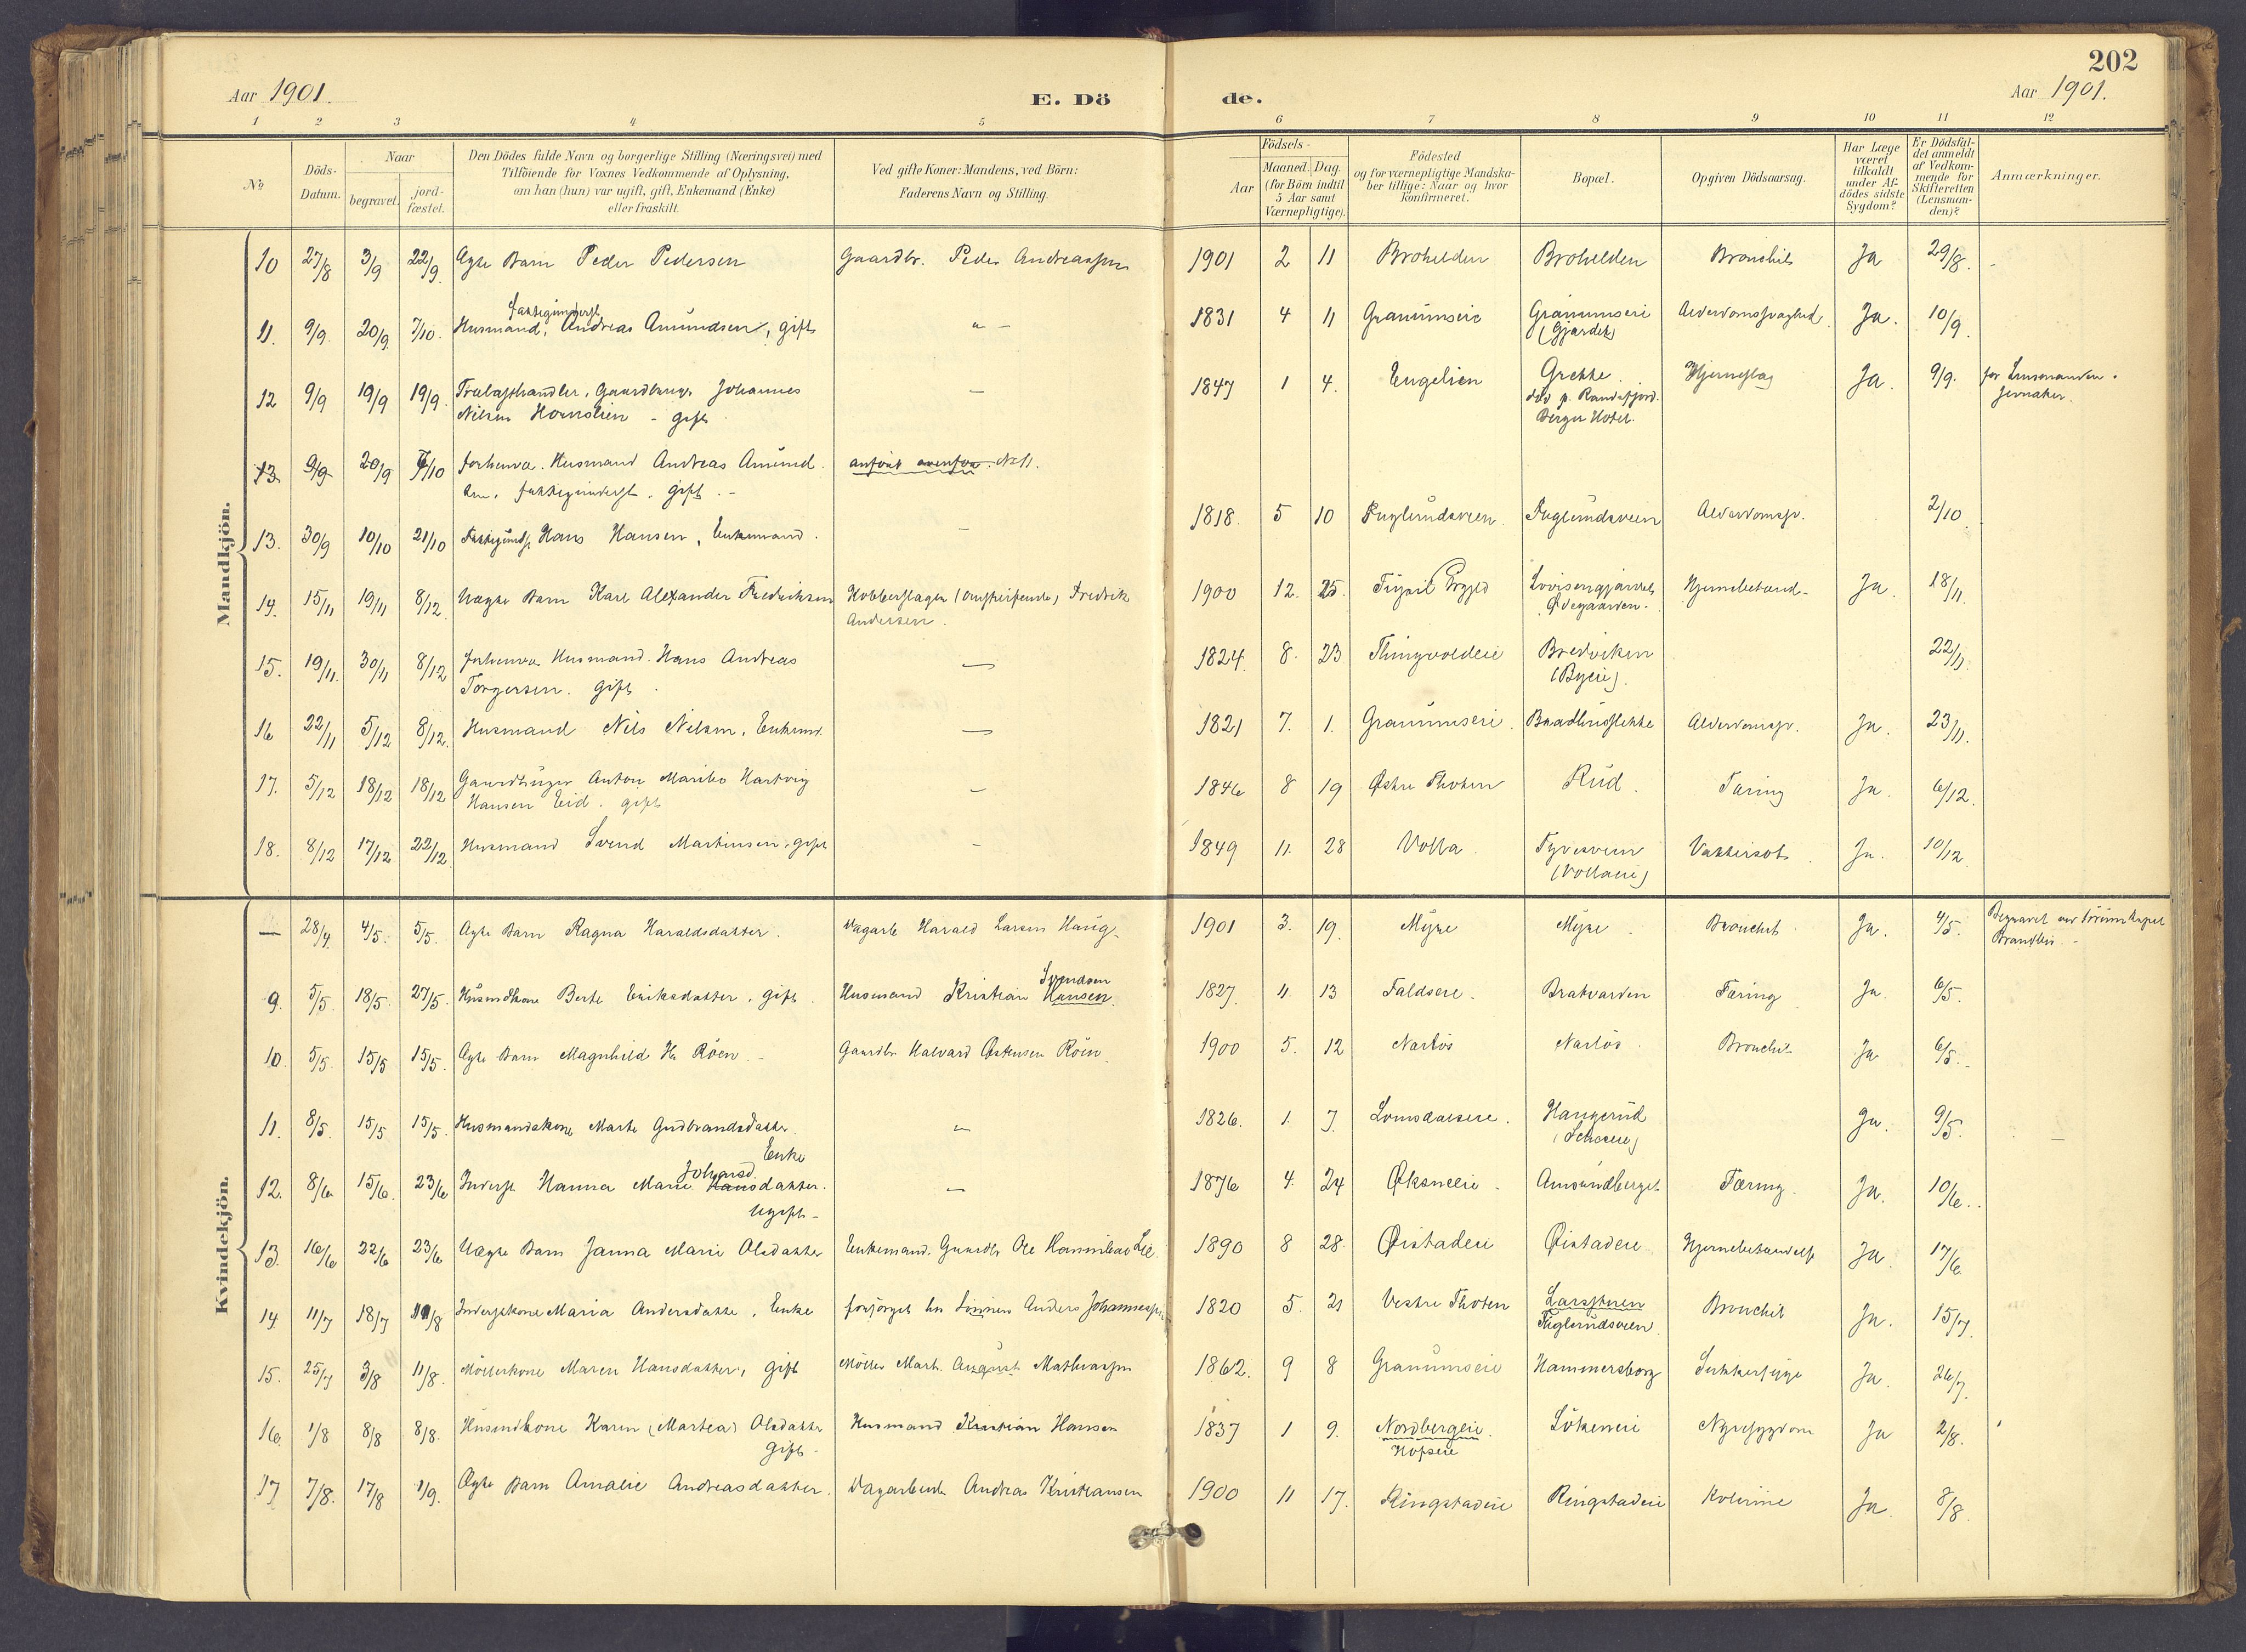 202
Aar 1901.
E. Dö de.
Aar 1901.
1 2 3 4 5 6 7 8 9 10 11 12
No
Döds-
Datum.
Naar
begravet.
jord-
fæstet.
Den Dödes fulde Navn og borgerlige Stilling (Næringsvei) med
Tilföiende for Voxnes Vedkommende af Oplysning,
om han (hun) var ugift, gift, Enkemand (Enke)
eller fraskilt.
Ved gifte Koner: Mandens, ved Börn:
Faderens Navn og Stilling.
Födsels-
Aar
Maaned. Dag.
(for Börn indtil
5 Aar samt
Værnepligtige).
Födested
og for værnepligtige Mandska-
ber tillige: Naar og hvor
konfirmeret.
Bopæl.
Opgiven Dödsaarsag.
Har Læge
været
tilkaldt
under Af-
dödes sidste
Sygdom?
Er Dödsfal-
det anmeldt
af Vedkom-
mende for
Skifteretten
(Lensman-
den)?
Anmærkninger.
Mandkjön.
10 27/8 3/9 22/9. Ægte Barn Peder Pedersen Gaardbr. Peder Andreassen 1901 2 11 Brohelden Brohelden Bronchit Ja 29/8.
11. 9/9 20/9 7/10. Husmand, Andreas Amundsen, gift 1831 4 11 Granumseie Granumseie Ja. 10/9
12 9/9 19/9 19/9. Trælasthandler, Gaardbruger Johannes 1847 1 4. Engelien Grette Hjerneslag Ja. 9/9. for Lensmanden i
Nilsen - gift Randsfjord. Jevnaker.
Berger Hotel.
13 9/9 20/9 7/10 forhenv. Husmand Andreas Amund- anført ovenfor No 11.
sen, gift. -
13. 30/9 10/10 21/10 Hans Hansen, Enkemand. 1818. 5 10 Fuglerudsveen Fuglerudsveen Alderdomssv. 2/10
14. 15/11 19/11 8/12. Uægte Barn Karl Alexander Fredriksen Kobberslager (omstreifende) Fredrik 1900 12. 25. Ja. 18/11.
Andersen. Ødegaarden.
15. 19/11. 30/11 8/12 forhenv. Husmand Hans Andreas 1824. 8. 23 Thingvoldeie Bredviken 22/11.
Torgersen. gift.
16 22/11 5/12 8/12. Husmand Nils Nilsen, Enkemd. 1821 7. 1. Granumseie. Alderdomssv. Ja. 23/11.
17. 5/12 18/12 18/12 Gaardbruger Anton Hartvig 1846 8 19 Østre Thoten Rud. Tæring Ja. 6/12.
Hansen Eid. gift
18. 8/12 17/12 22/12. Husmand Svend Martinsen, gift 1849 11. 28 Volla. Vattersot. Ja. 10/12.
(Vollaeie)
Kvindekjön.
— 28/4 4/5. 5/5. Ægte Barn Ragna Haraldsdatter. Dagarb. Harald Larsen Haug. 1901 3. 19. Myre Myre. Bronchit. Ja. 4/5. Begravet ved
Brandbu. -
9. 5/5. 18/5. 27/5. Husmdkone Berte Eriksdatter, gift. Husmand Kristian Hansen. 1827. 11. 13 Faldseie. Tæring Ja. 6/5.
Svendsen
10. 5/5. 15/5 15/5. Ægte Barn Magnhild H. Röen. - Gaardbr. Halvard Østensen Röen. 1900 5. 12 Bronchit Ja 6/5. -
11. 8/5. 15/5 15/5. Husmandskone Marte Gudbrandsdatter. 1826. 1. 7. Haugerud Ja. 9/5.
Enke
12. 8/6 15/6. 23/6 Inderst Hanna Marie Hansdatter. 1876 4. 24 Økseneeie Amundberget Tæring. Ja. 10/6.
Johansd.
Ugift -
13. 16/6 22/6 23/6 Uægte Barn Janna Marie Olsdatter Enkemand. Gaardbr. Ole Lee. 1890 8 28. Øistadeie Øistadeie. Hjernebetændelse Ja. 17/6
14. 11/7 18/7 11/8 Inderstkone Maria Andersdatter, Enke Anders Johannessen 1820 5. 21 Vestre Thoten Larsstuen Bronchit Ja. 15/7.
Fuglerudsveen.
15. 25/7 3/8 11/8. Möllerkone Maren Hansdatter, gift Möller Mart. August Mathiassen 1862. 9 8 Granumseie Hammersborg Sukkersyge Ja. 26/7.
16. 1/8 8/8 8/8. Husmdkone Karen (Martea) Olsdatter Husmand Kristian Hansen 1837 1 9. Nordbergeie. Nyresygdom Ja 2/8.
gift - Hofseie
17 7/8. 17/8 1/9. Ægte Barn Amalie Andreasdatter. Dagarbeid. Andreas Kristiansen 1900 11 17. Ringstadeie Ringstadeie Kolerine Ja. 8/8.